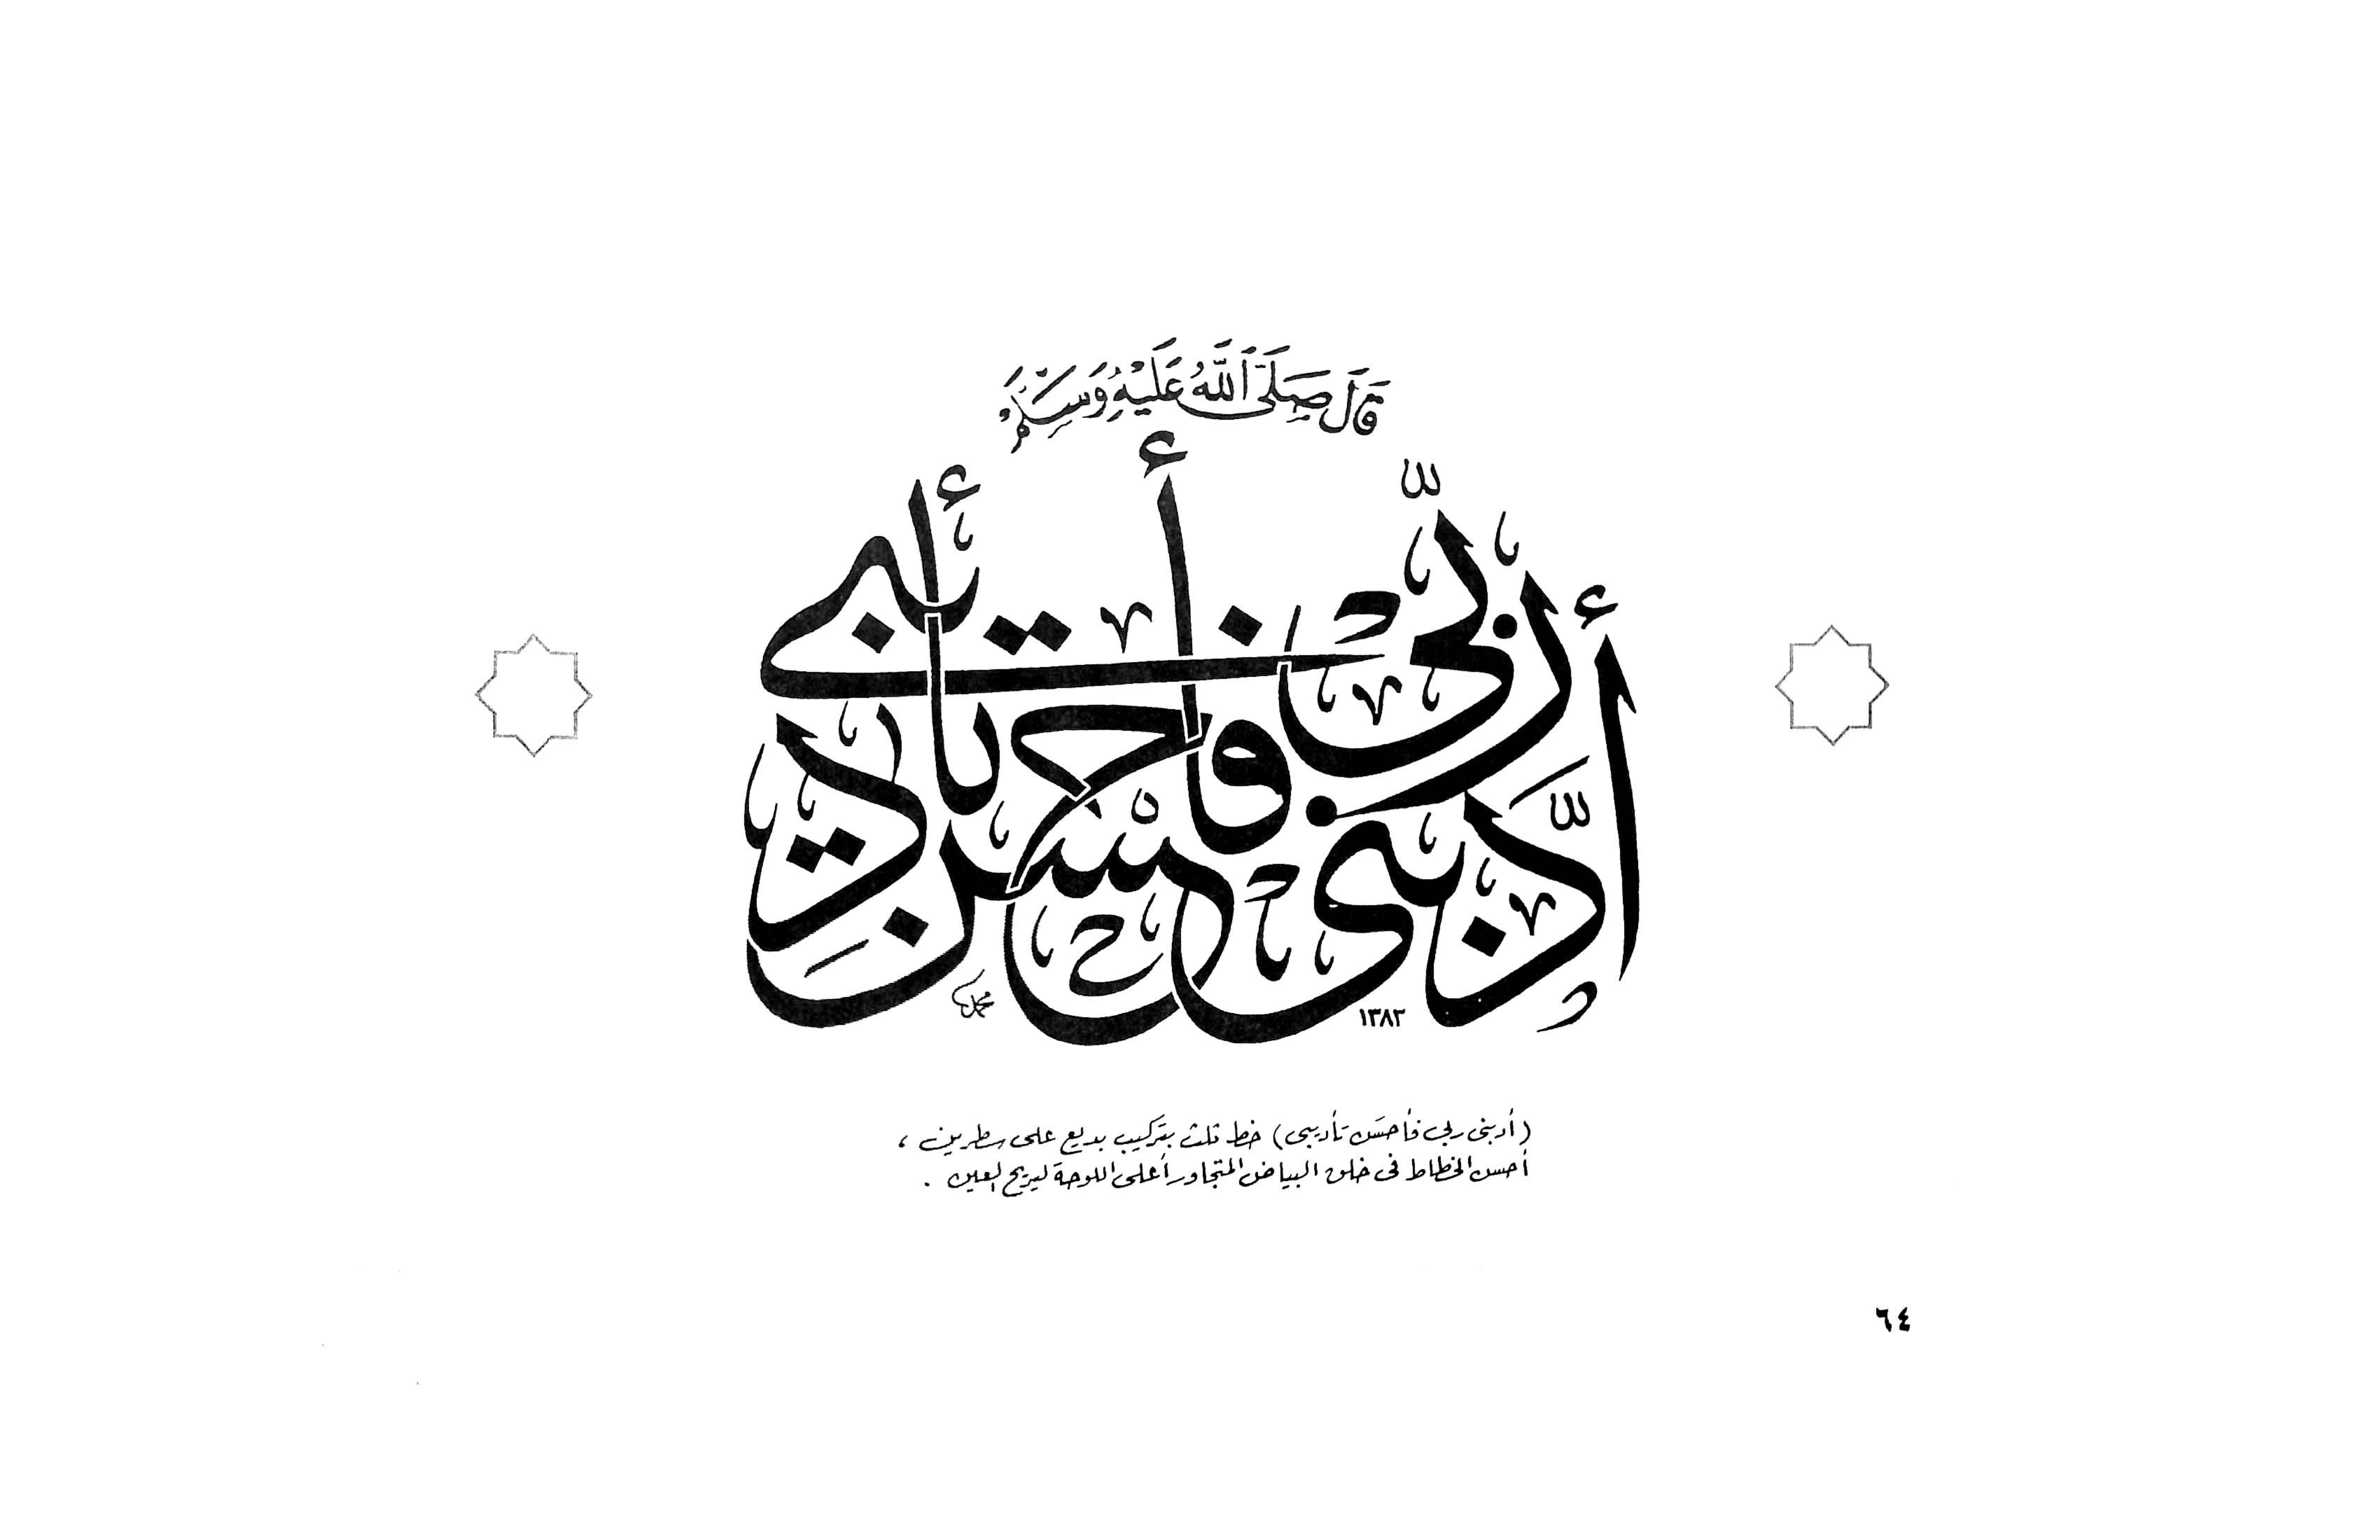 قَالَ صَلَّى اللَّهُ عَلَيْهِ وَسَلَّمَ
أَدَّبَنِي رَبِّي فَأَحْسَنَ تَأْدِيبِي
محمد
١٣٨٣
(أدبنى ربي فأحسَن تأديبى) خط ثلث بتركيب بديع على سطرين ،
أحسن الخطاط فى خلق البياض المتجاور أعلى اللوحة ليريح العين .
٦٤